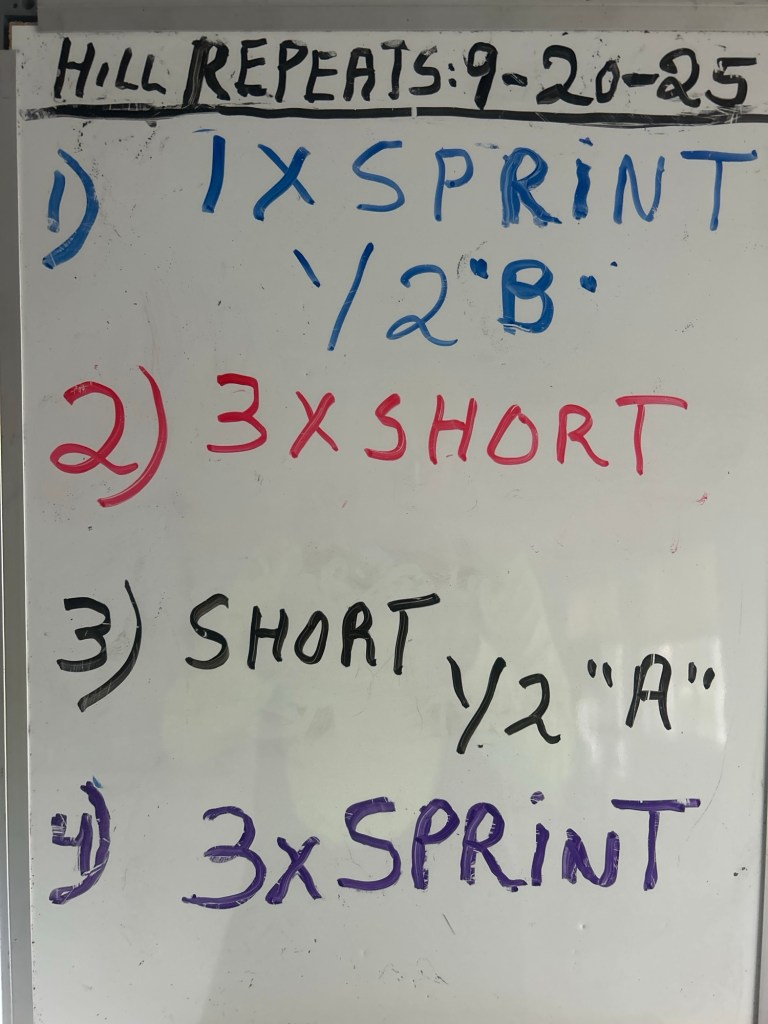 HiLL REPEATS: 9-20-25
1) 1X SPRiNT
1/2 "B"
2) 3X SHORT
3) SHORT
1/2 "A"
4) 3x SPRiNT